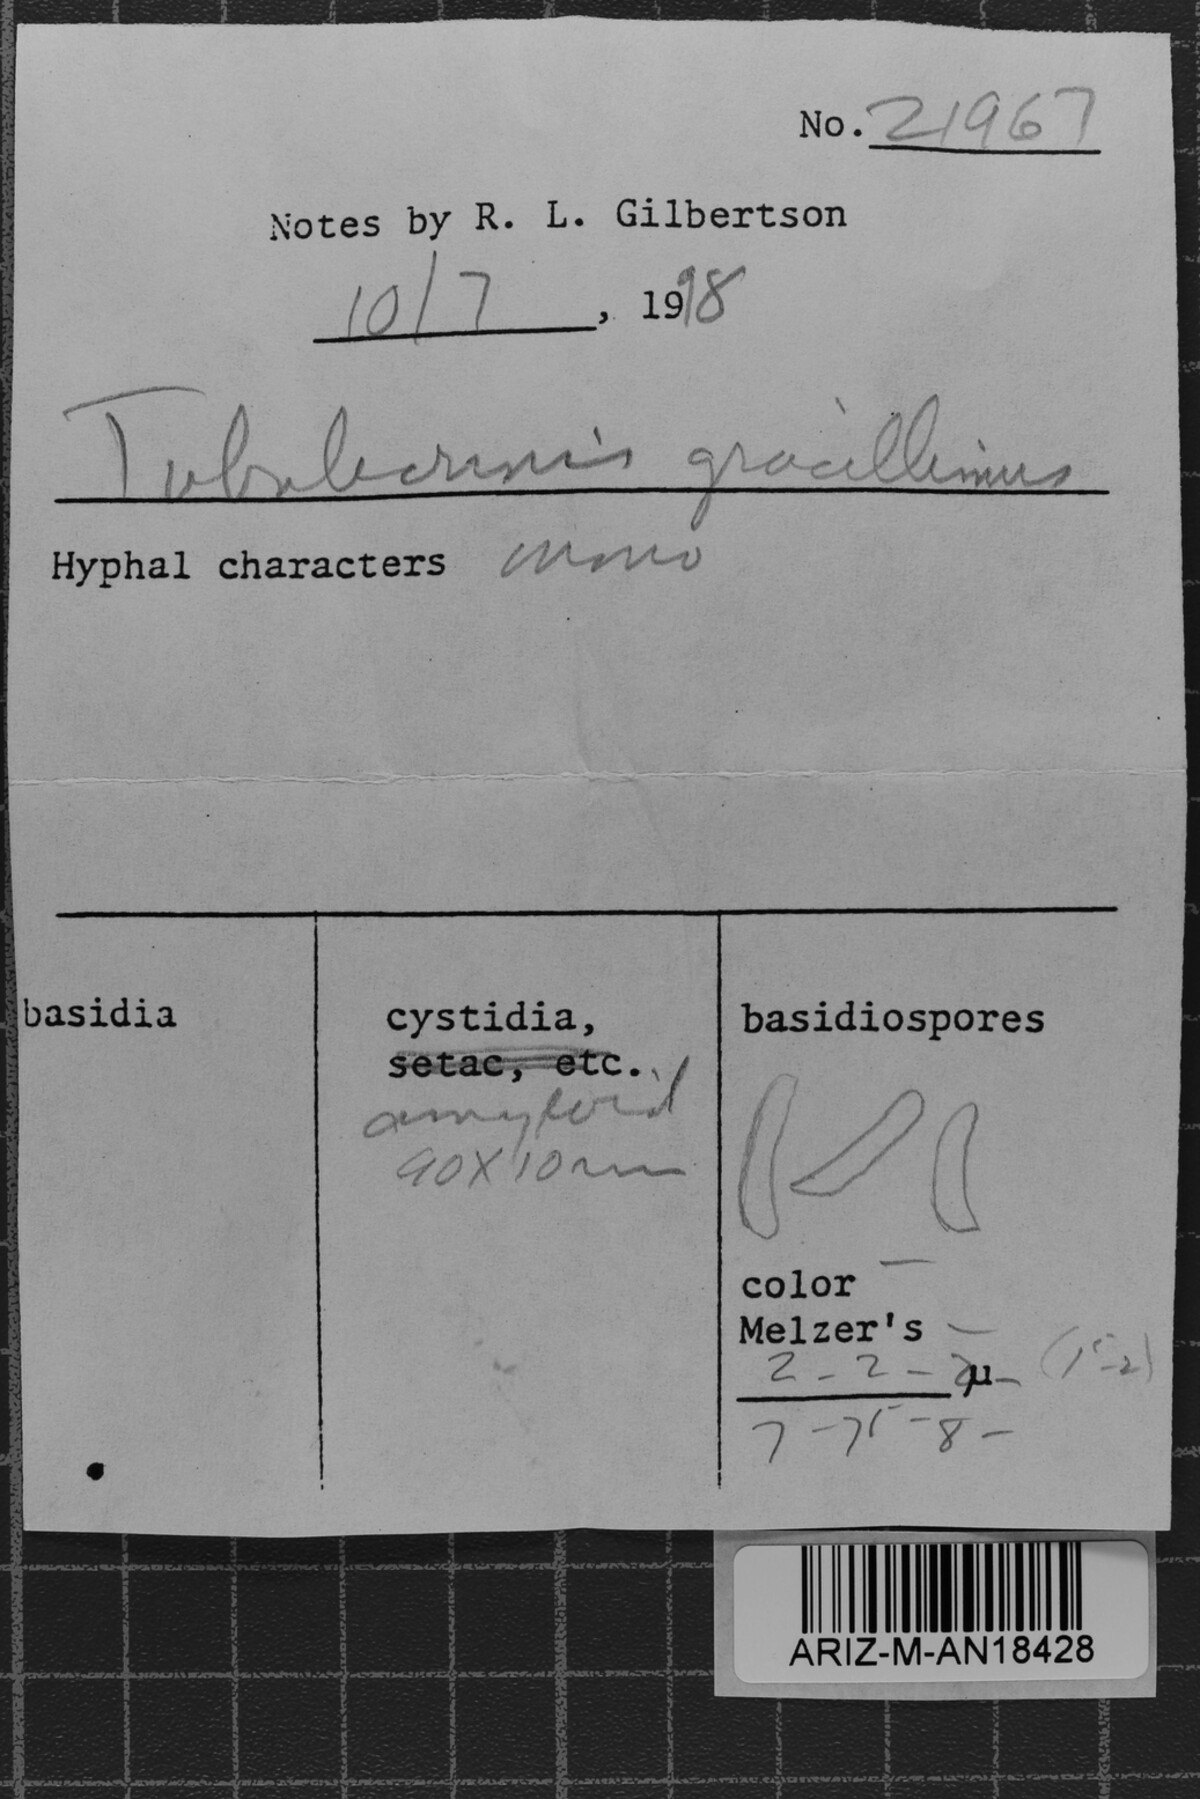 No. 21967
Notes by R. L. Gilbertson
10/7, 1998
Tubulicrinis gracillimus
Hyphal characters mono
basidia
cystidia,
setac, etc.
amyloid
90X10 um
basidiospores
color —
Melzer's —
2 - 2 - 2 µ - (15-2)
7 - 75 - 8 -
ARIZ-M-AN18428